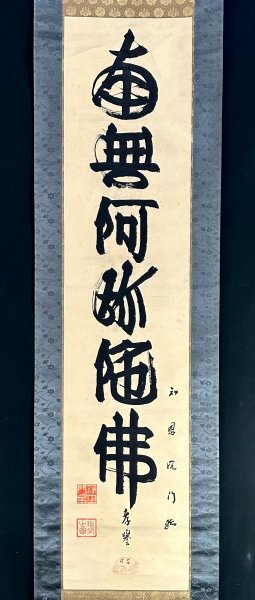 南無阿弥陀佛
知恩院門跡
孝譽